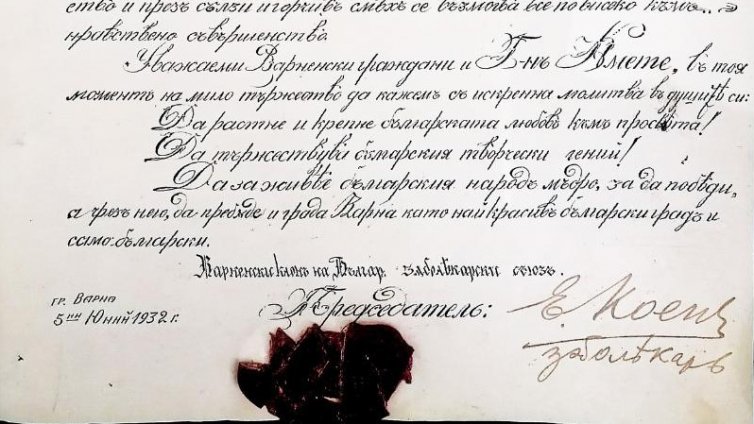 ство и презъ сълзи и горчивъ смѣхъ се възмогва все по високо къмъ...
нравствено съвършенство.
Уважаеми Варненски граждани и Г-нъ Кмете, въ тоя
моментъ на мило тържество да кажемъ съ искренна молитва въ душитѣ си:
Да растне и крепне българската любовь къмъ просвѣта!
Да тържествува българския творчески гений!
Да заживѣе българския народъ мѫдро, за да победи,
а чрезъ него, да пребѫде и града Варна като най красивъ български градъ и
само български.
Варненски клонъ на Българ. зъболѣкарски съюзъ.
гр. Варна
5ий Юний 1932 г.
Председатель:
Е. Коенъ
зъболѣкарь